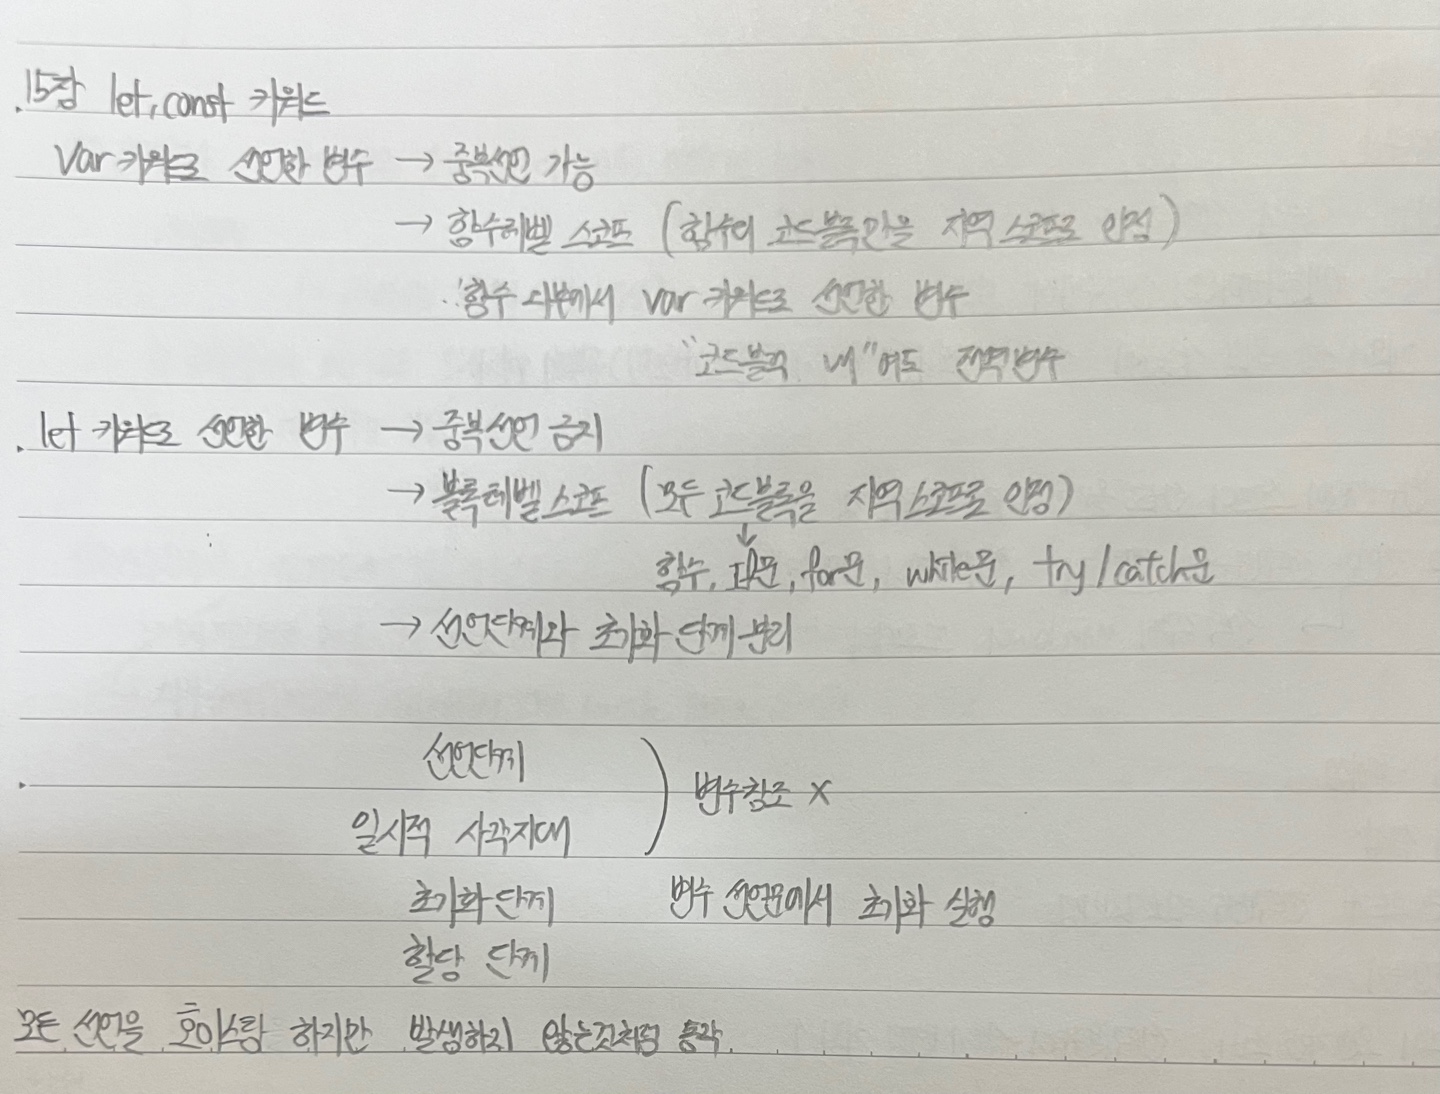 15장 let, const 키워드
var 키워드로 선언한 변수 → 중복선언 가능
→ 함수레벨 스코프 (함수의 코드블록만을 지역 스코프로 인정)
∴ 함수 외부에서 var 키워드로 선언한 변수
"코드블록 내"여도 전역변수
let 키워드로 선언한 변수 → 중복선언 금지
→ 블록레벨 스코프 (모두 코드블록을 지역 스코프로 인정)
↓
함수, if문, for문, while문, try/catch문
→ 선언단계와 초기화 단계 분리
선언단계
일시적 사각지대 ) 변수참조 X
초기화 단계 변수 선언문에서 초기화 실행
할당 단계
모든 선언을 호이스팅 하지만 발생하지 않는것처럼 동작